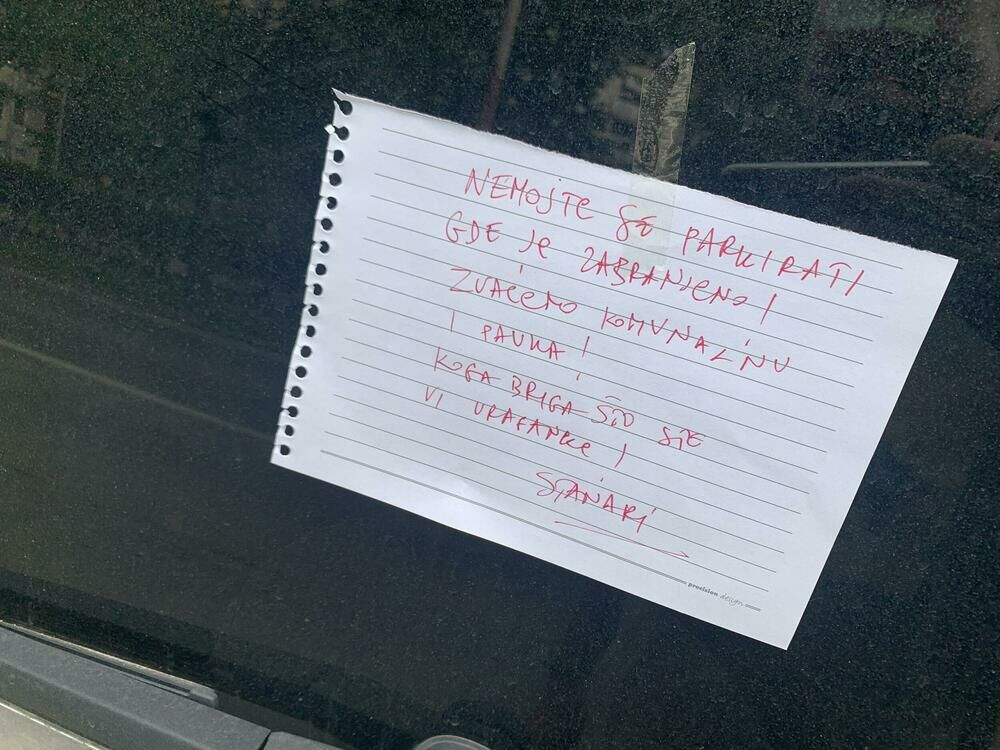 NEMOJTE SE PARKIRATI
GDE JE ZABRANJENO!
ZVAĆEMO KOMUNALNU
I PAUKA!
KOGA BRIGA ŠTO STE
VI URAGANKE!
STANARI
precision design